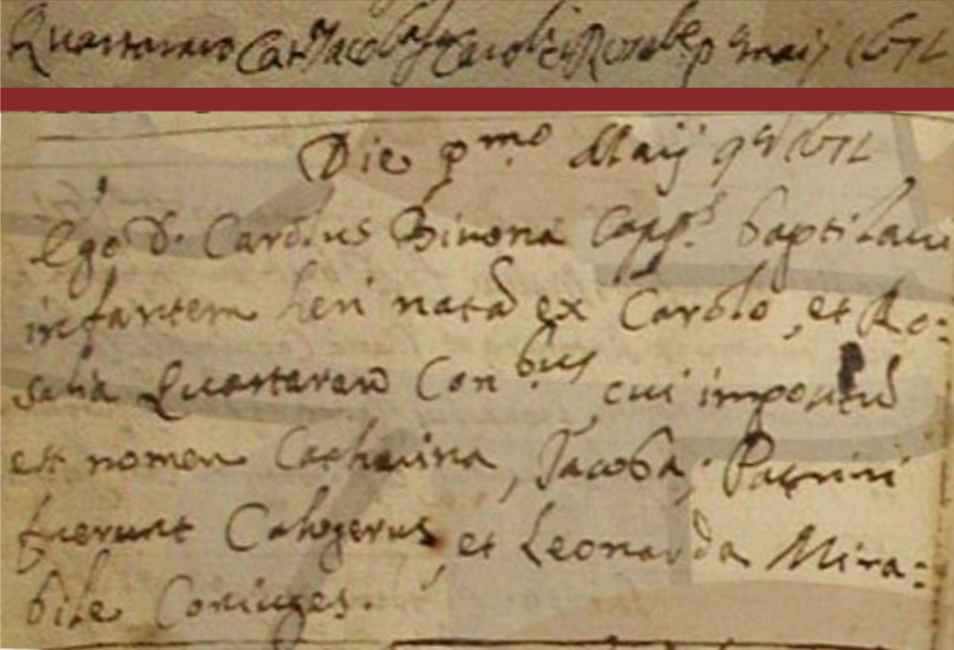 Quartararo Cat Jacoba fa Caroli et Rosaliae p maij 1672
Die pmo Maij 1672
Ego D. Carolus Bivona Capps baptizavi
infantem heri natã ex Carolo, et Ro:
salia Quartararo Conbus, cui impositũ
est nomen Catharina, Jacoba; Patrini
fuerunt Calogerus, et Leonarda Mira:
bile Coniuges.